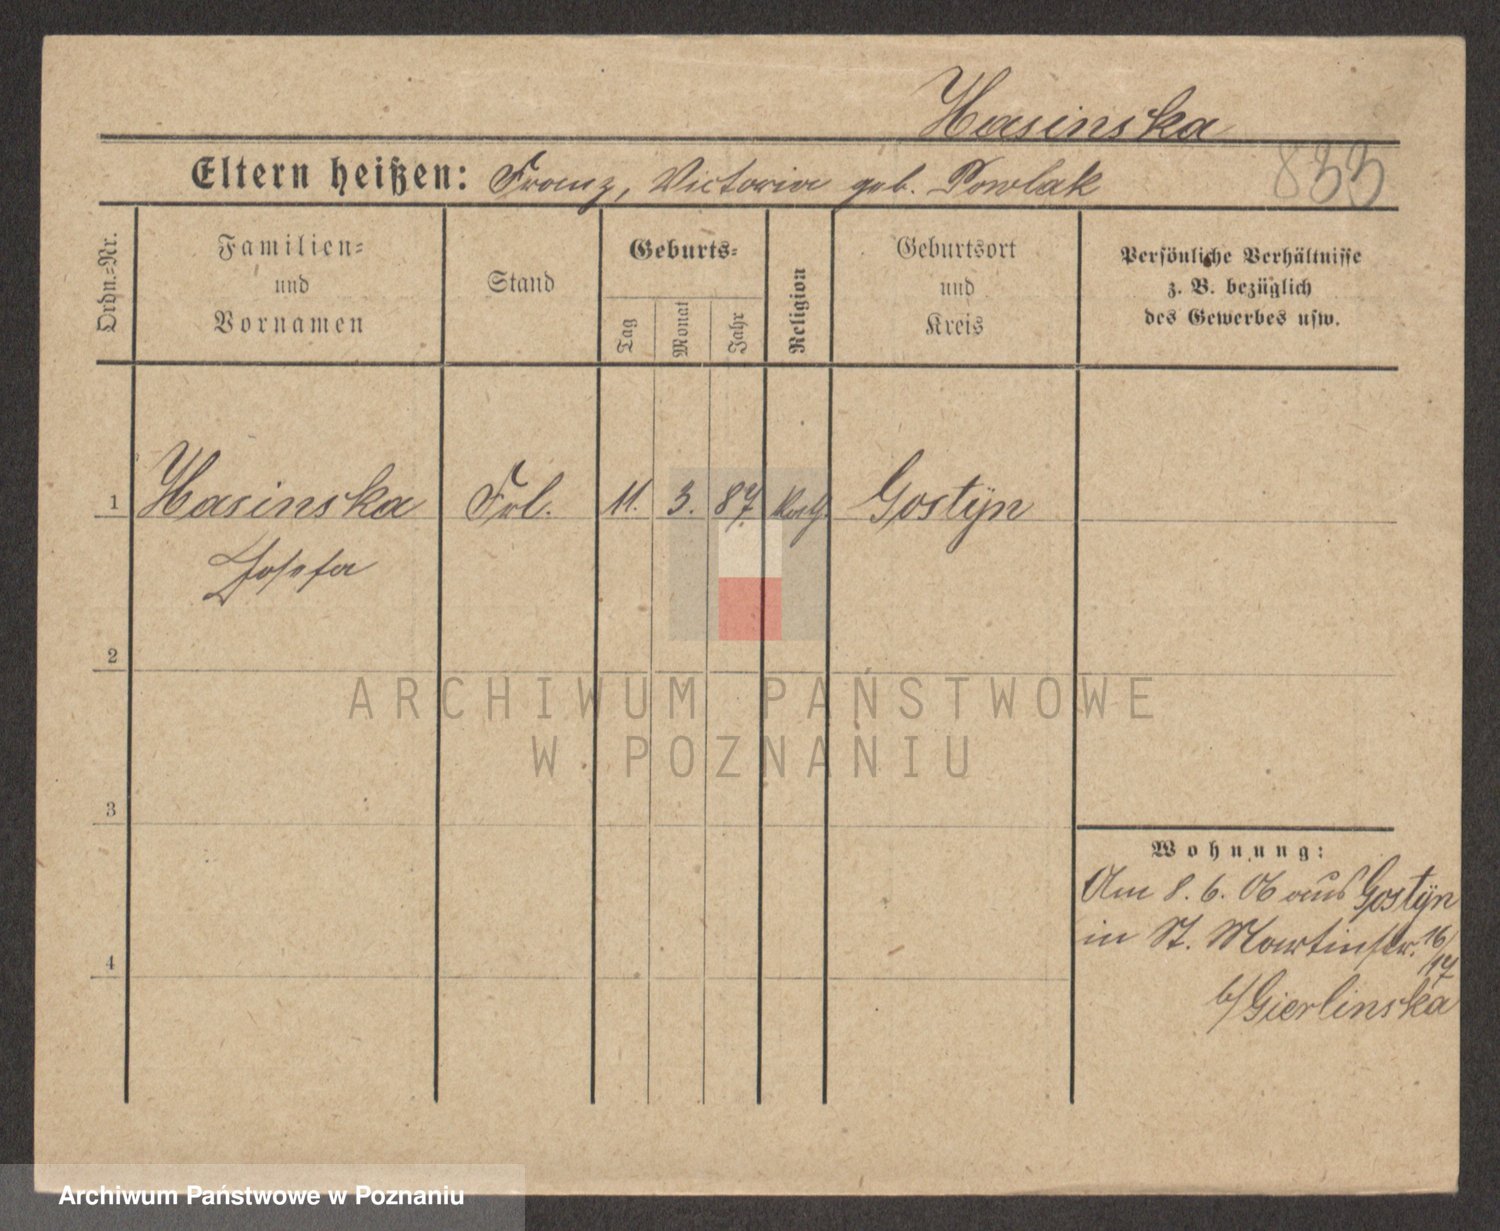 Hasinska
833
Eltern heißen: Franz, Victoria geb. Pawlak
Ordn.-Nr.
Familien-
und
Vornamen
Stand
Geburts-
Tag
Monat
Jahr
Religion
Geburtsort
und
Kreis
Persönliche Verhältnisse
z. B. bezüglich
des Gewerbes usw.
1 Hasinska Frl. 11. 3. 87 kath. Gostÿn
Josefa
2
3
4
Wohnung:
Am 8. 6. 06 aus Gostÿn
in St. Martinstr. 16/17
b/Gierlinska
ARCHIWUM PAŃSTWOWE
W POZNANIU
Archiwum Państwowe w Poznaniu